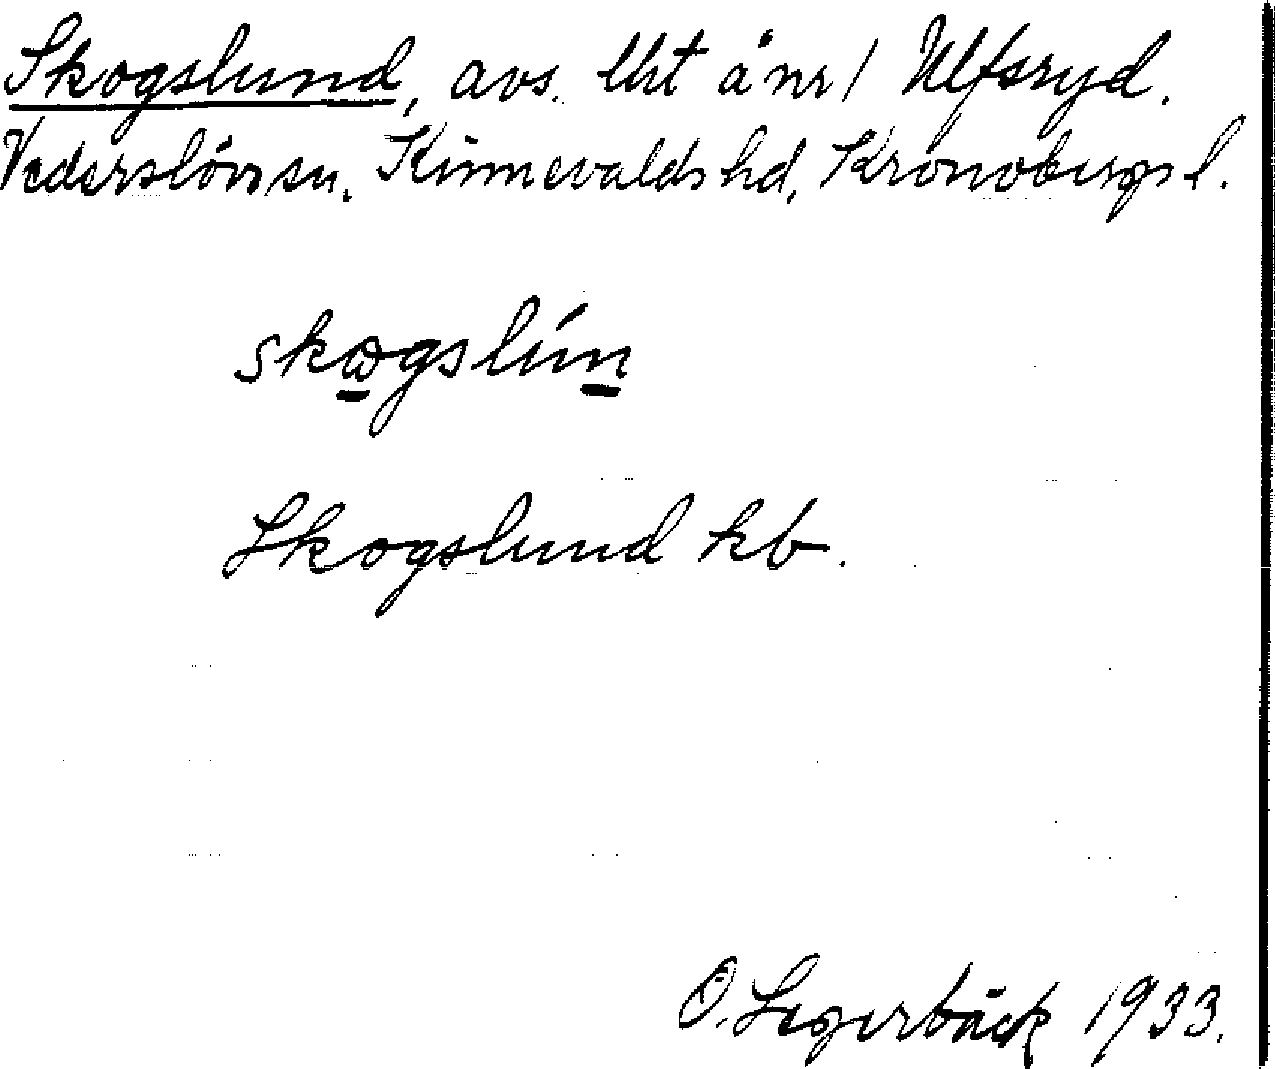 Skogslund, avs. lht å nr 1 Ulfsryd.
Vederslövs sn. Kinnevalds hd, Kronobergs l.
skωgslún
Skogslund kb.
O. Segerbäck 1933.